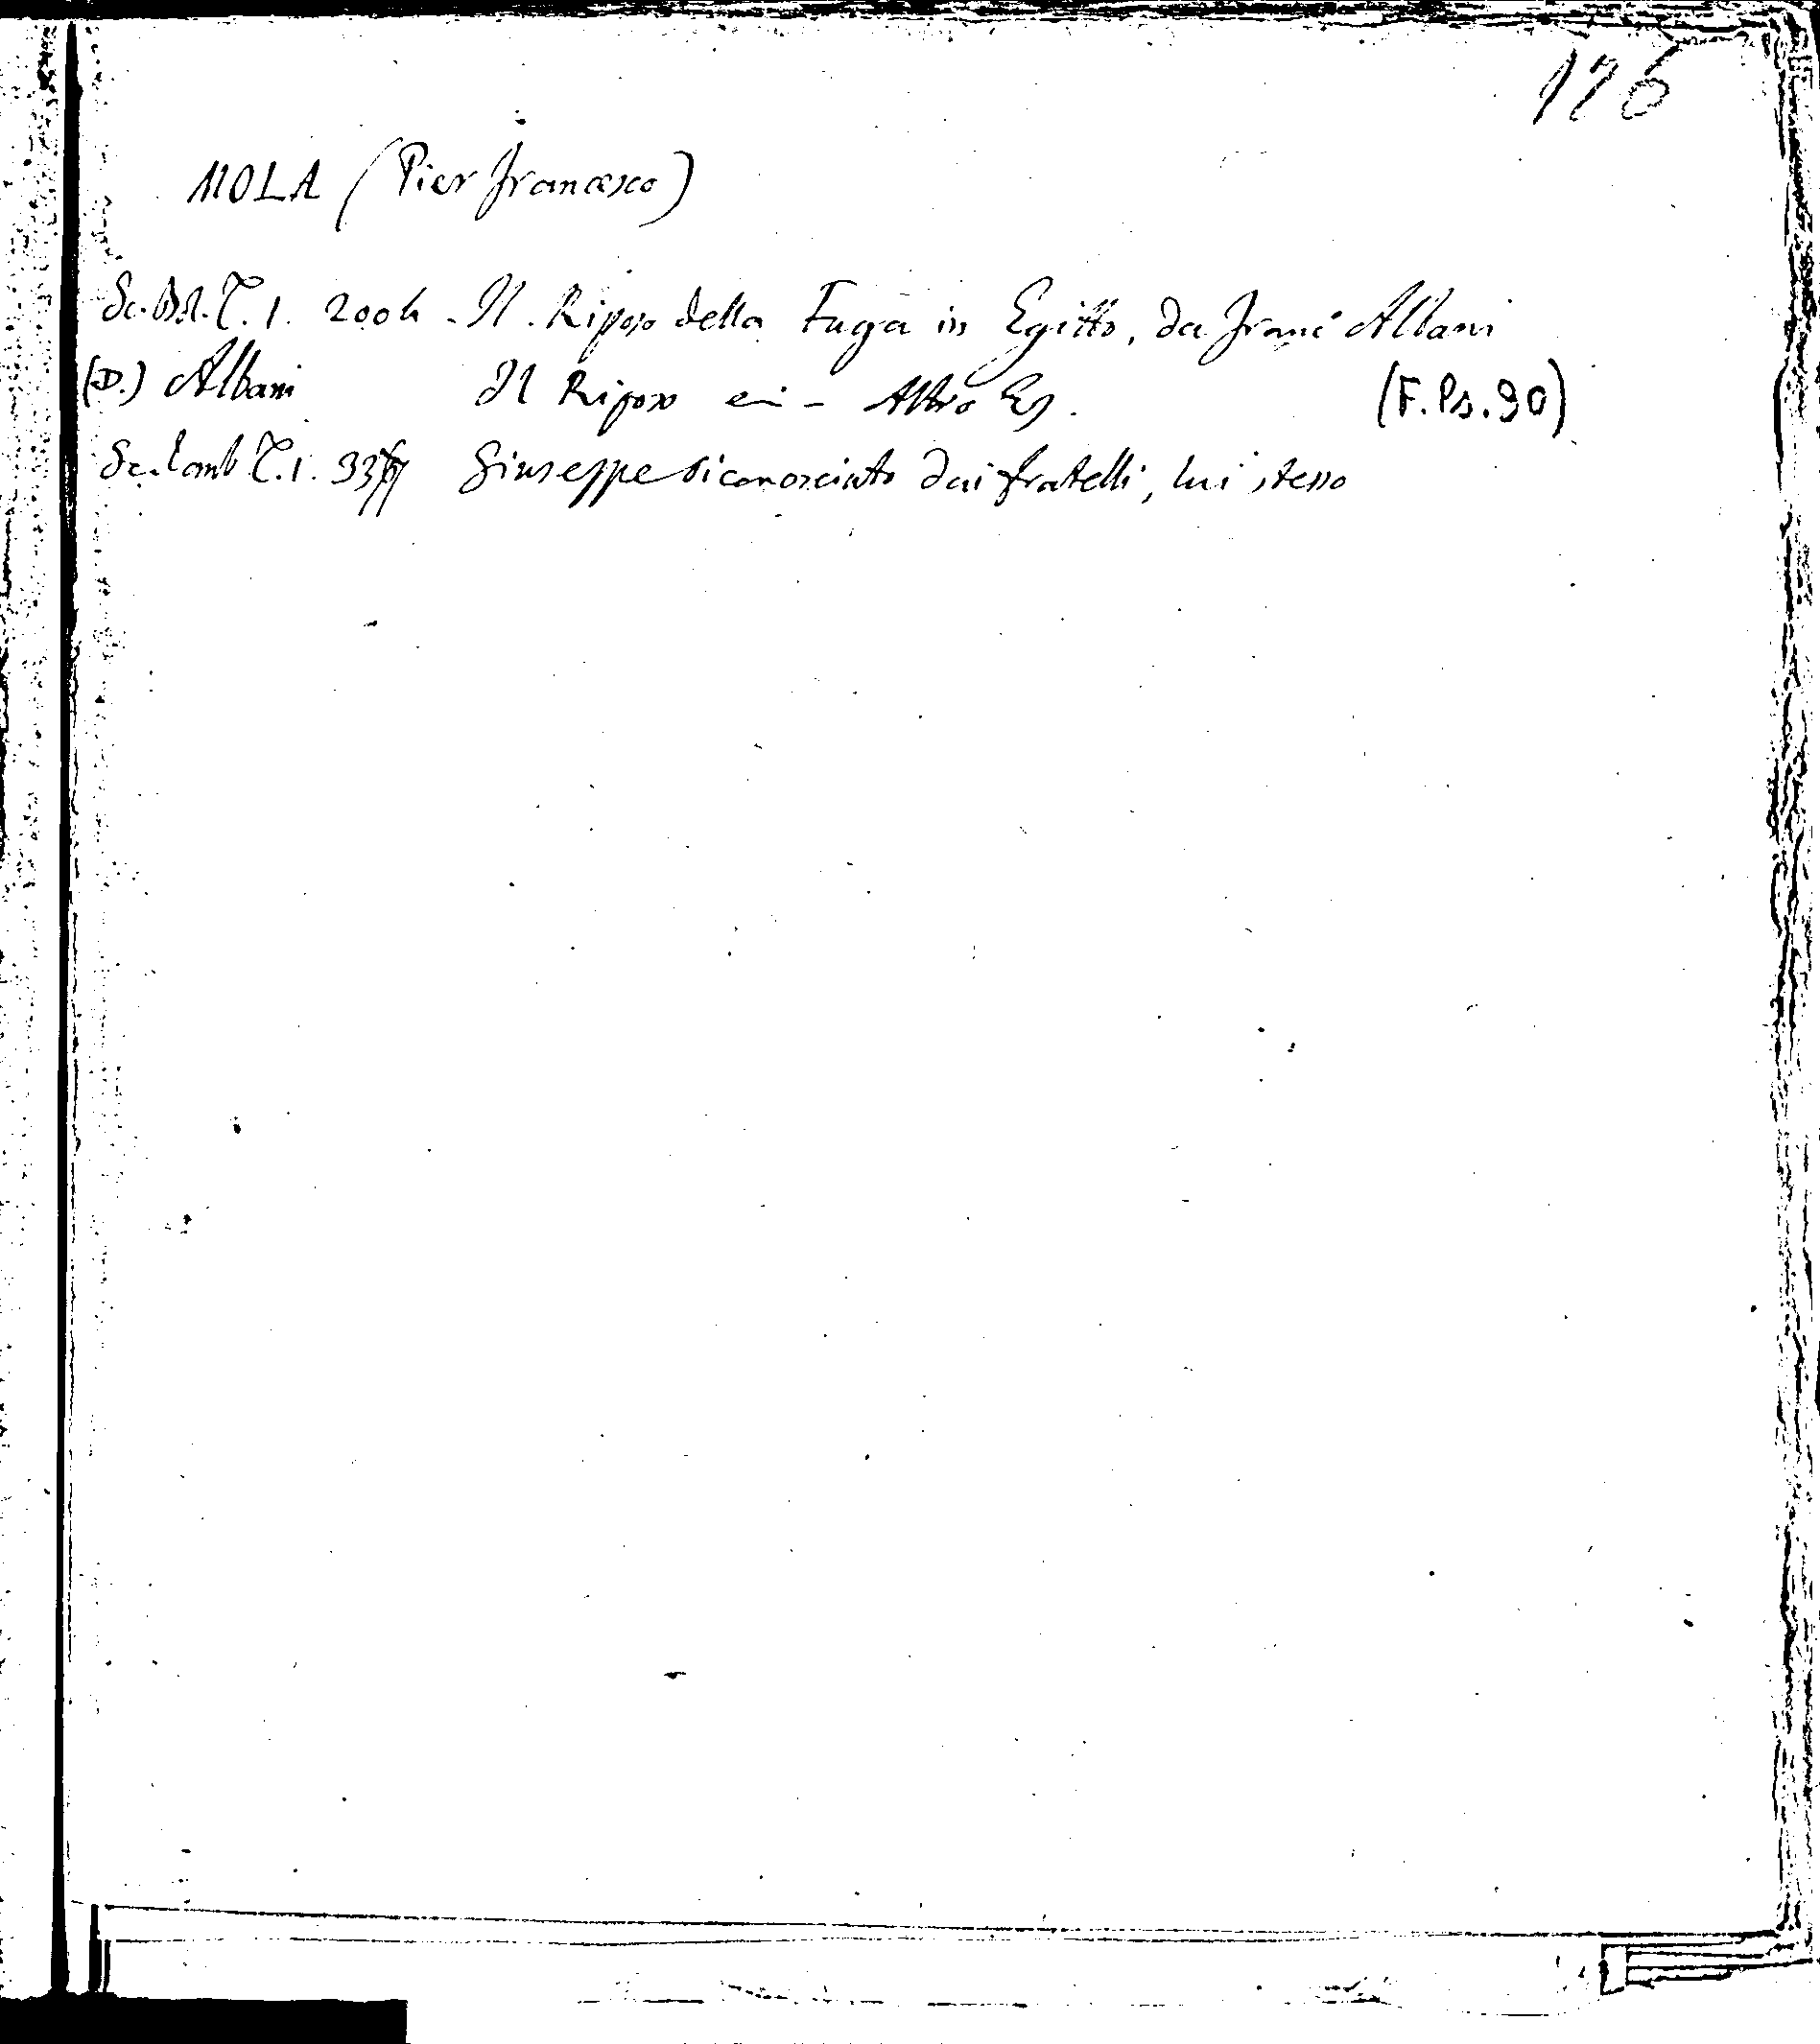 176
MOLA (Pier Francesco)
Sc. Bol. T. 1. 200 h - Il Riposo della Fuga in Egitto, da Franc Albani
(D.) Albani Il Riposo - Altro Es. (F. Ps. 90)
Sc. Lomb T. 1. Giuseppe riconosciuto dai fratelli, lui stesso